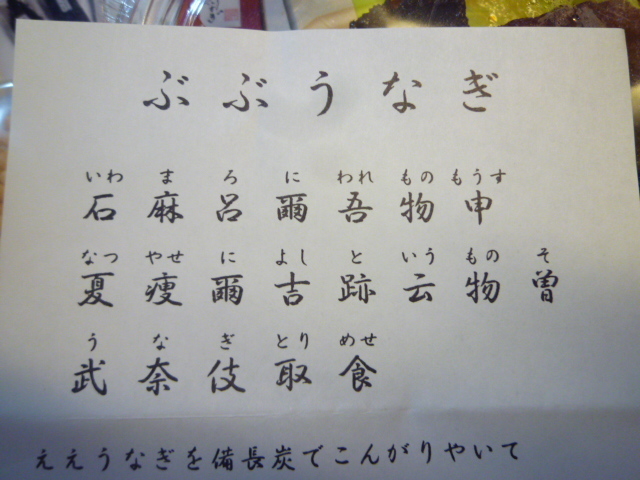 ぶぶうなぎ
いわ ま ろ に われ もの もうす
石麻呂爾吾物申
なつ やせ に よし と いう もの そ
夏痩爾吉跡云物曽
う な ぎ とり めせ
武奈伎取食
ええうなぎを備長炭でこんがりやいて